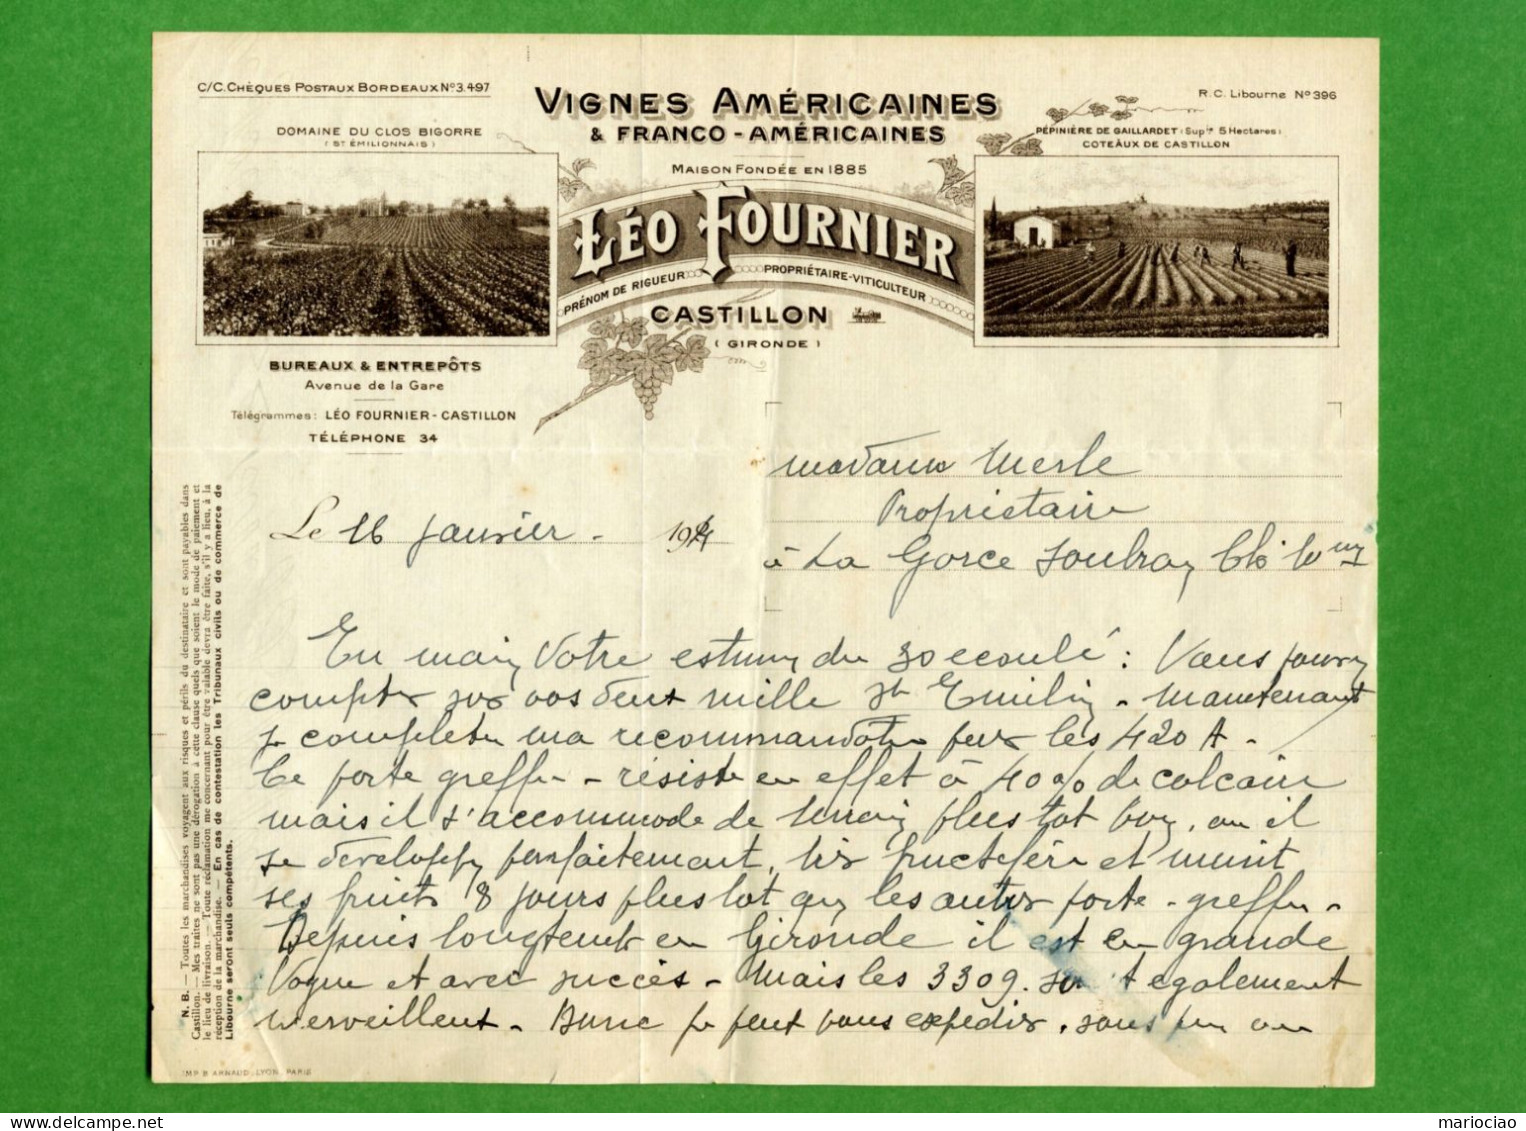 C/C. CHÈQUES POSTAUX BORDEAUX Nº 3.497
VIGNES AMÉRICAINES
& FRANCO-AMÉRICAINES
R.C. Libourne Nº 396
DOMAINE DU CLOS BIGORRE
(ST ÉMILIONNAIS)
PÉPINIÈRE DE GAILLARDET (Supre 5 Hectares)
COTEAUX DE CASTILLON
MAISON FONDÉE EN 1885
LÉO FOURNIER
PRÉNOM DE RIGUEUR
PROPRIÉTAIRE-VITICULTEUR
CASTILLON
(GIRONDE)
BUREAUX & ENTREPÔTS
Avenue de la Gare
Télégrammes: LÉO FOURNIER-CASTILLON
TÉLÉPHONE 34
Madame Merle
Propriétaire
à La Gorce
Le 16 Janvier - 19
En main Votre du 30 écoulé : Vous pouvez
compter sur vos deux mille St Emilion - Maintenant
je complète ma recommandation pour les 420 A -
Ce porte greffe - résiste en effet à 40% de calcaire
mais il s'accommode de terrain plus tot bon, ou il
se développe parfaitement, très fructifère et murit
ses fruits 8 jours plus tot que les autres porte-greffe -
Depuis longtemps en Gironde il est en grande
Vogue et avec succès - Mais les 3309 sont également
merveilleux - Donc je peut vous expédier, sous peu ou
N. B. — Toutes les marchandises voyagent aux risques et périls du destinataire et sont payables dans
Castillon. — Mes traites ne sont pas une dérogation à cette clause quels que soient le mode de paiement et
le lieu de livraison. — Toute réclamation me concernant pour être valable devra être faite, s'il y a lieu, à la
réception de la marchandise. — En cas de contestation les Tribunaux civils ou de commerce de
Libourne seront seuls compétents.
IMP. B. ARNAUD, LYON, PARIS
mariociao